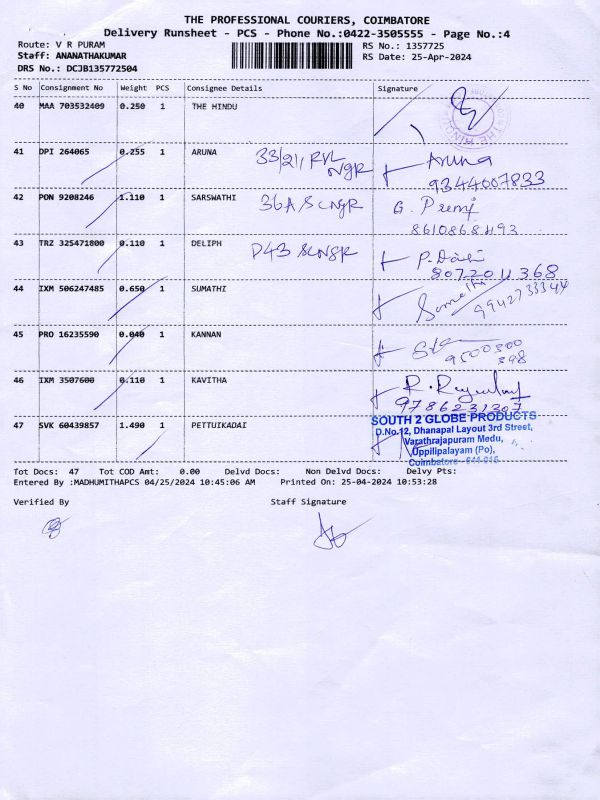 THE PROFESSIONAL COURIERS, COIMBATORE
Delivery Runsheet - PCS - Phone No.:0422-3505555 - Page No.:4
Route: V R PURAM
Staff: ANANATHAKUMAR
DRS No.: DCJB135772504
RS No.: 1357725
RS Date: 25-Apr-2024
S No Consignment No Weight PCS Consignee Details Signature
40 MAA 703532409 0.250 1 THE HINDU
THE HINDU
41 DPI 264065 0.255 1 ARUNA 33/21, RVL NGR Aruna
9344007833
42 PON 9208246 1.110 1 SARSWATHI 36A SCNGR G. Premj
8610868493
43 TRZ 325471800 0.110 1 DELIPH D43 SCNGR
8072011368
44 IXM 506247485 0.650 1 SUMATHI
9942733344
45 PRO 16235590 0.040 1 KANNAN
9500300
398
46 IXM 3507600 0.110 1 KAVITHA
9786231307
47 SVK 60439857 1.490 1 PETTUIKADAI
SOUTH 2 GLOBE PRODUCTS
D.No.12, Dhanapal Layout 3rd Street,
Varathrajapuram Medu,
Uppilipalayam (Po),
Coimbatore - 641 015
Tot Docs: 47 Tot COD Amt: 0.00 Delvd Docs: Non Delvd Docs: Delvy Pts:
Entered By :MADHUMITHAPCS 04/25/2024 10:45:06 AM Printed On: 25-04-2024 10:53:28
Verified By Staff Signature